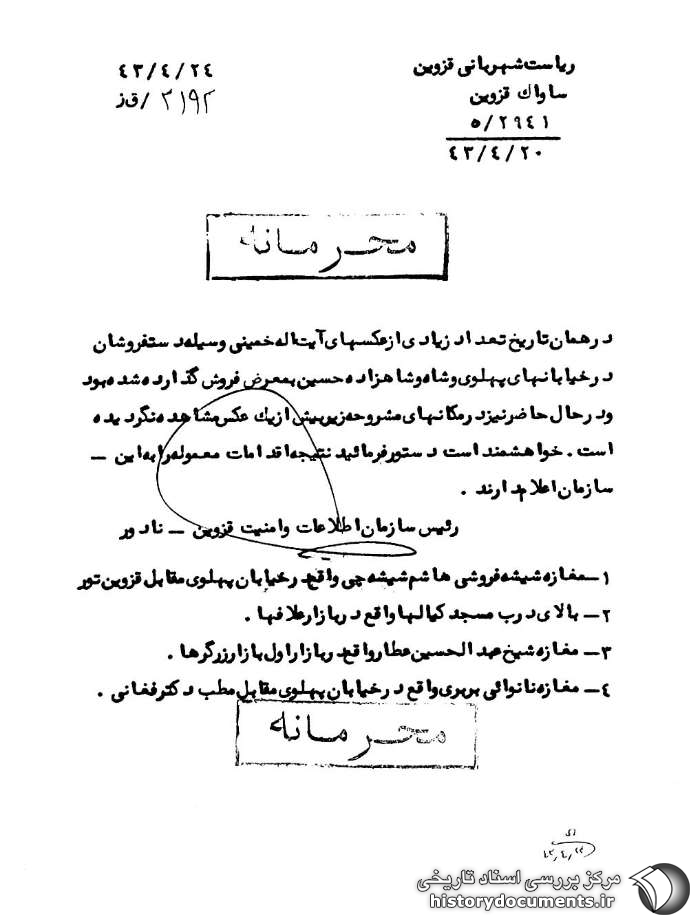 ریاست شهربانی قزوین
ساواک قزوین
۵/۲۹٤۱
٤۳/٤/۲۰
٤۳/٤/۲٤
۲۱۹۲/ق ز
محرمانه
در همان تاریخ تعداد زیادی از عکسهای آیت اله خمینی وسیله دستفروشان
در خیابانهای پهلوی و شاه و شاهزاده حسین بمعرض فروش گذارده شده بود
و در حال حاضر نیز در مکانهای مشروحه زیر بیش از یك عکس مشاهده نگردیده
است . خواهشمند است دستور فرمائید نتیجه اقدامات معموله را به این ــ
سازمان اعلام دارند .
رئیس سازمان اطلاعات وامنیت قزوین ــ نادور
۱ــ مغازه شیشه فروشی هاشم شیشه چی واقع در خیابان پهلوی مقابل قزوین تور
۲ــ بالای درب مسجد کیالها واقع در بازار علافها .
۳ــ مغازه شیخ عبدالحسین عطار واقع در بازار اول بازار زرگرها .
٤ــ مغازه نانوائی بربری واقع در خیابان پهلوی مقابل مطب دکتر فغانی .
محرمانه
مرکز بررسی اسناد تاریخی
historydocuments.ir